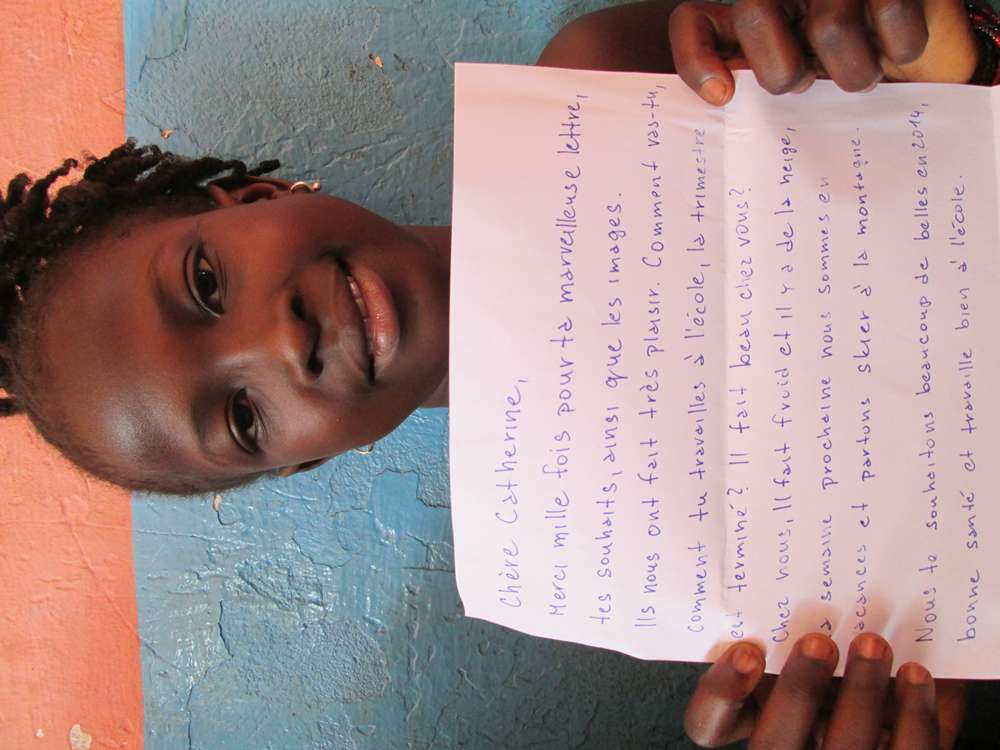 Chère Catherine,
Merci mille fois pour ta marveilleuse lettre,
tes souhaits, ainsi que les images.
Ils nous ont fait très plaisir. Comment vas-tu,
comment tu travailles à l'école, la trimestre
est terminé? Il fait beau chez vous?
Chez nous, Il fait fruid et il y a de la neige,
a semaine prochaine nous sommes en
acances et partons skier à la montagne.
Nous te souhaitons beaucoup de belles en 2014,
bonne santé et travaille bien à l'école.